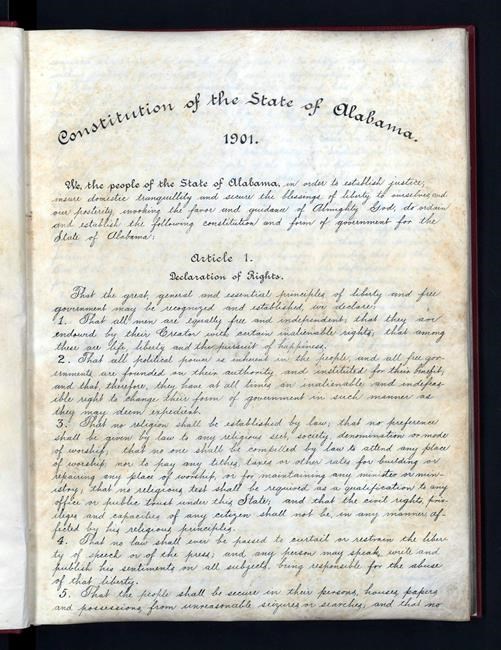 Constitution of the State of Alabama.
1901.
We, the people of the State of Alabama, in order to establish justice,
insure domestic tranquillity and secure the blessings of liberty to ourselves and
our posterity, invoking the favor and guidance of Almighty God, do ordain
and establish the following constitution and form of government for the
State of Alabama;
Article 1.
Declaration of Rights.
That the great, general and essential principles of liberty and free
government may be recognized and established, we declare:
1. That all men are equally free and independent; that they are
endowed by their Creator with certain inalienable rights; that among
these are life, liberty and the pursuit of happiness.
2. That all political power is inherent in the people, and all free gov-
ernments are founded on their authority, and instituted for their benefit;
and that, therefore, they have at all times an inalienable and indefeas-
ible right to change their form of government in such manner as
they may deem expedient.
3. That no religion shall be established by law; that no preference
shall be given by law to any religious sect, society, denomination or mode
of worship; that no one shall be compelled by law to attend any place
of worship; nor to pay any tithes, taxes or other rates for building or
repairing any place of worship, or for maintaining any minister or min-
istry; that no religious test shall be required as a qualification to any
office or public trust under this State; and that the civil rights, priv-
ileges and capacities of any citizen shall not be in any manner af-
fected by his religious principles.
4. That no law shall ever be passed to curtail or restrain the liber-
ty of speech or of the press; and any person may speak, write and
publish his sentiments on all subjects, being responsible for the abuse
of that liberty.
5. That the people shall be secure in their persons, houses, papers
and possessions from unreasonable seizures or searches, and that no